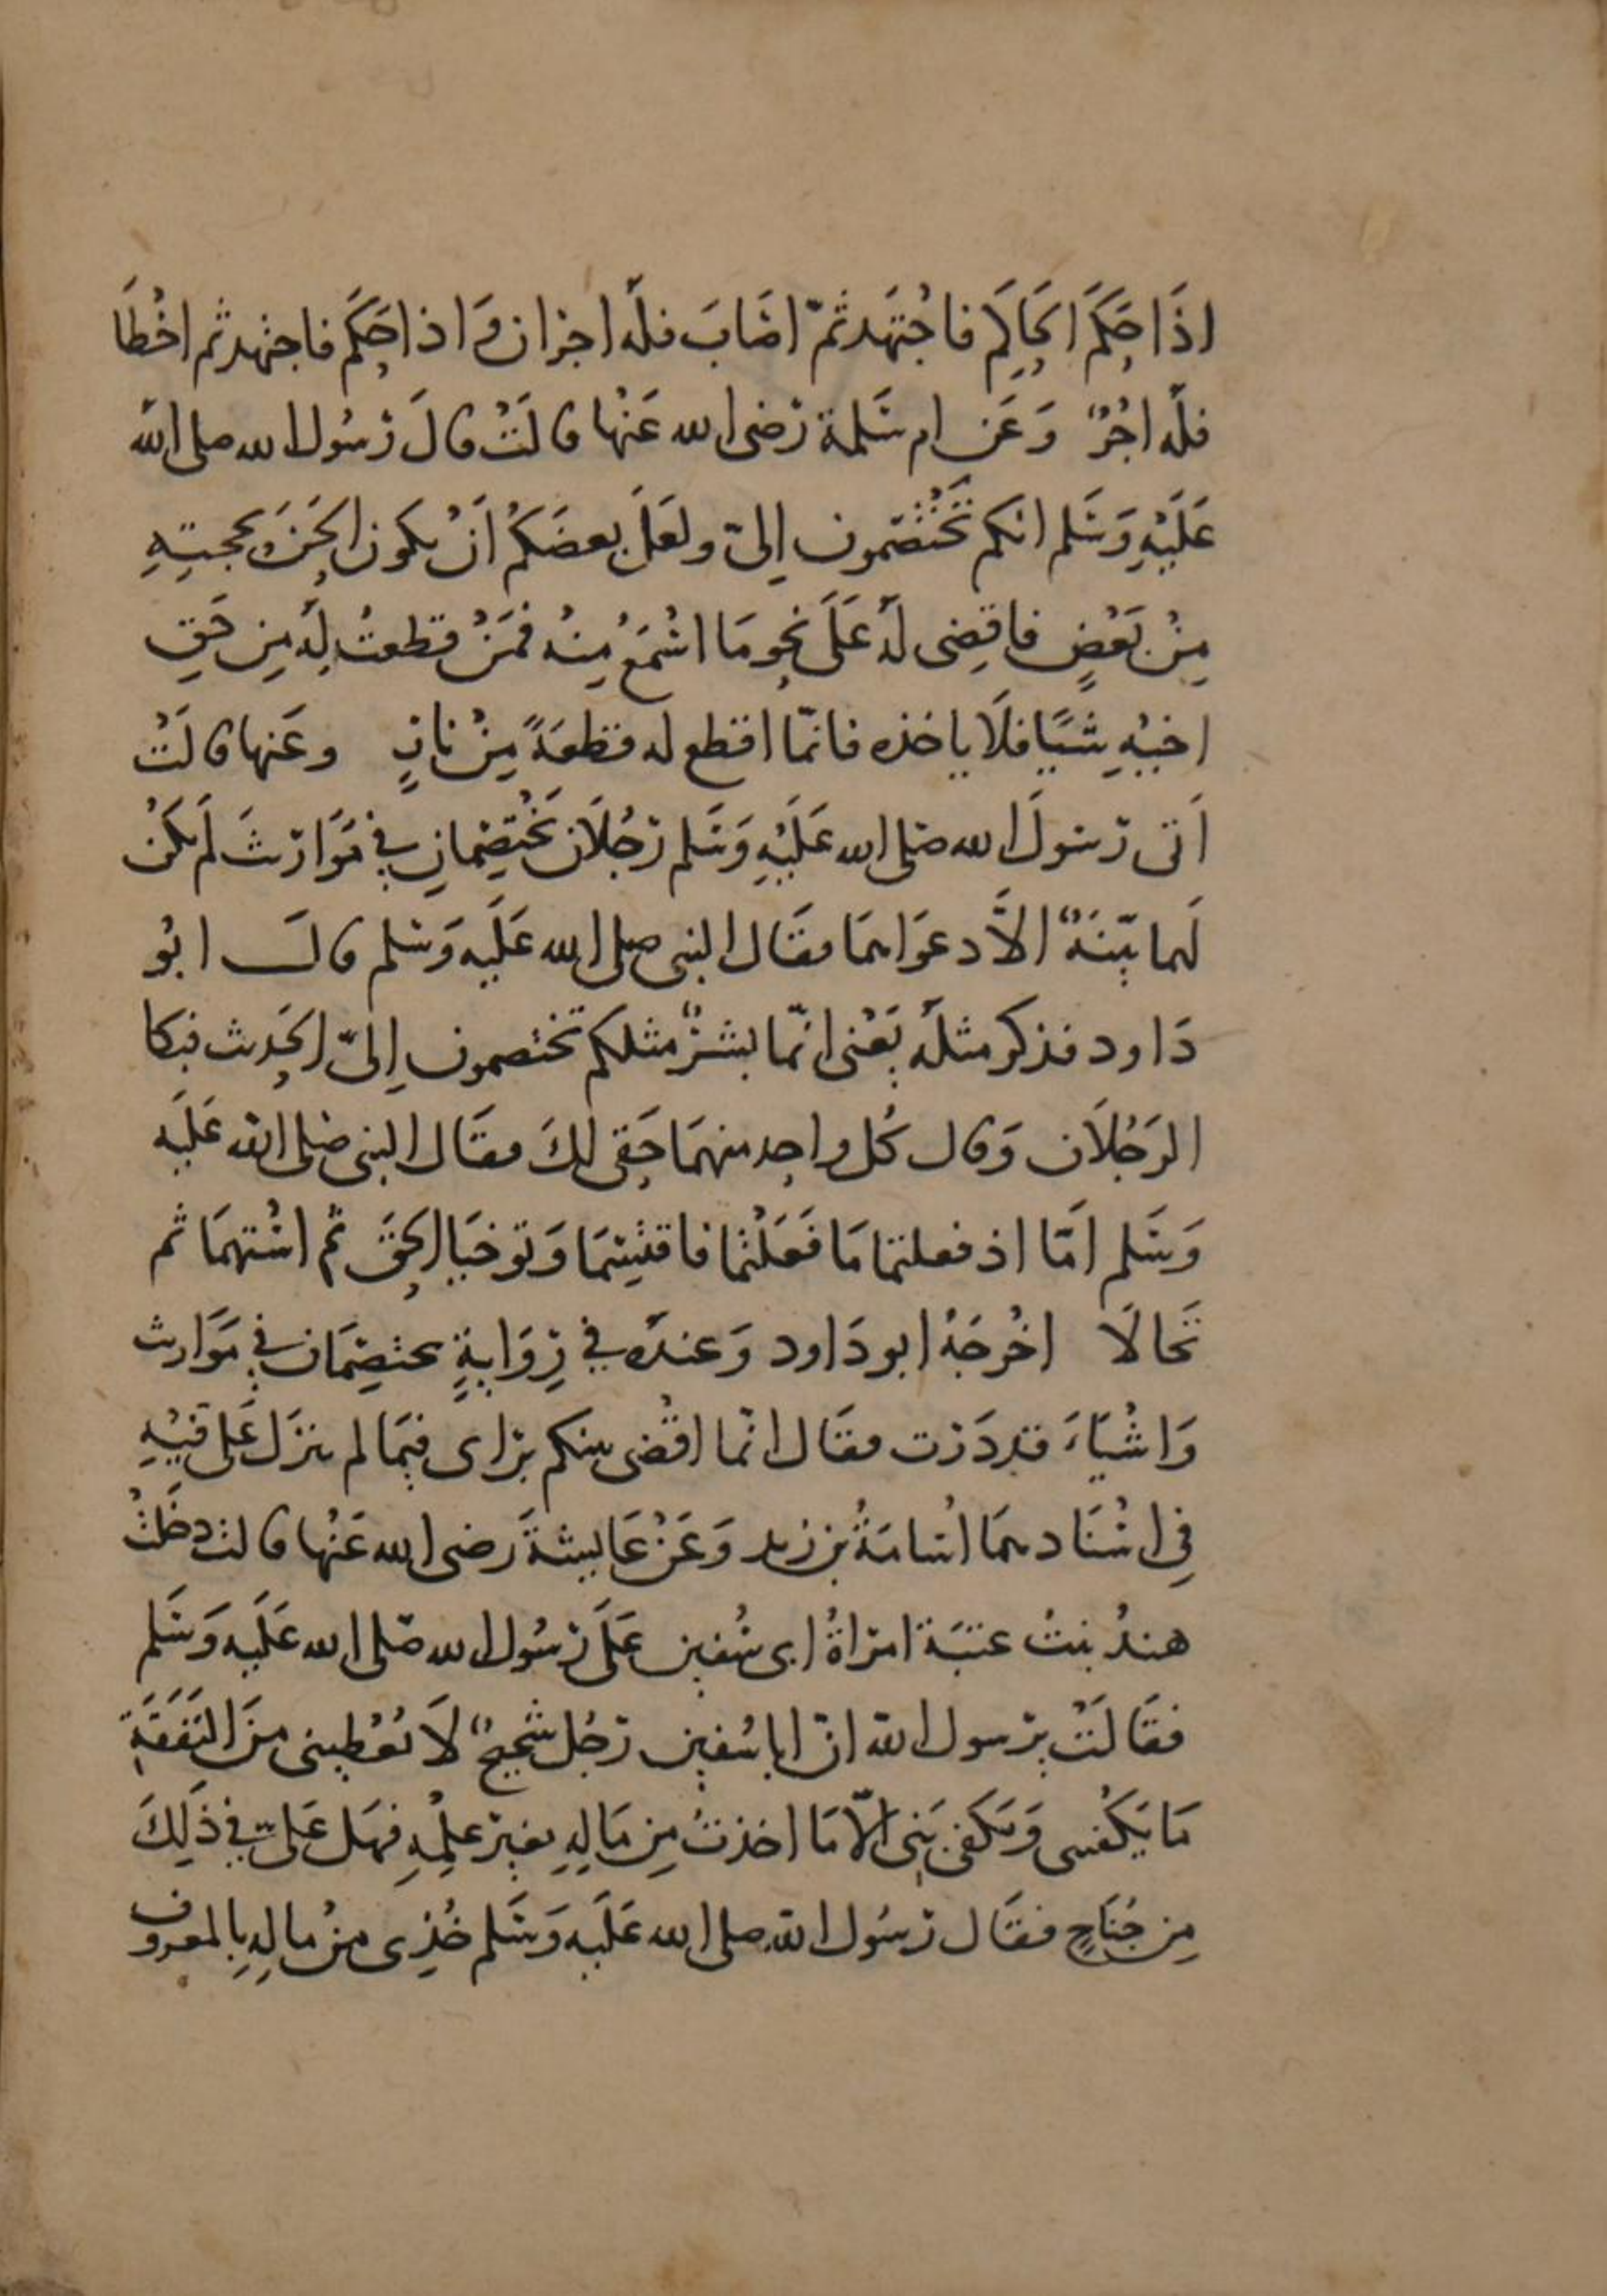 اذَا حَكَمَ الحَاكِم فاجْتَهَد ثمّ اصَابَ فلهُ اجرَان وَاذا حَكَم فاجتهد ثم اخْطَا
فلهُ اجْرٌ وَعَن ام سَلمة رَضى الله عَنْها قالَتْ قالَ رَسُول الله صلى الله
عَلَيْهِ وَسَلم انكم تَخْتَصمون إلىّ ولعَل بعضَكُم اَنْ يكون الحَنَ بحجتِهِ
مِنْ بَعْضٍ فاقِضى لَهُ عَلَى نحو مَا اسْمَعُ مِنهُ فمَنْ قطعتُ لهُ مِن حَقِ
اخيْهِ شَيًا فلَا ياخذه فانمّا اقطع له قطعَةً مِنْ نارٍ وعَنها قالَتْ
اَتى رَسولَ الله صَلى الله عَلَيْهِ وَسَلم رَجُلَان يَخْتَصِمانِ فِي مَوَاريثَ لَم يَكنْ
لَهما بيّنَةٌ الاَّ دعوَاهما فقَال النبى صلى الله عَلَيه وَسَلم قالَ ابُو
دَاود فذكر مثلهُ يَعْنى انمّا بشرٌ مثلكم تختصمون إلىّ الحَديث فبكا
الرَجُلَان وَقال كُل واحِد منهمَا حَقى لكَ فقَال النبى صَلى الله عَلَيه
وَسَلم امّا اذ فعلتما مَا فَعَلْتُما فاقتَسِمَا وَتوخيَا الحَقَ ثم اسْتهمَا ثم
تَحَالَا اخْرجَهُ ابو دَاود وَعندَه في رِوَايةٍ يختصِمَان في مَوَاريث
وَاشْيَاءَ قد دَرَست فقَال انمّا اقْضى بينكم برَاى فيمَا لم ينزَل عَلى فيْهِ
فِى اسْنَادهمَا اسَامَةُ بن زيد وَعَنْ عَايِشةَ رَضى الله عَنْها قالت دخَلتْ
هندُ بنتُ عتبَة امرَاةُ ابى سُفين عَلَى رَسُول الله صَلى الله عَليه وَسَلم
فقَالَتْ يرَسول الله انّ ابا سُفين رَجُل شَحيحٌ لَا يُعْطِينى مِنَ النَفَقَةِ
مَا يَكْفينى وَيَكفى بَنِىّ الاّ مَا اخذتُ مِن مَالِهِ بغير عِلْمِهِ فهَل عَلىّ في ذَلِكَ
مِن جُنَاحٍ فقَال رَسُول الله صلى الله عَلَيه وَسَلم خُذِى مِنْ مالِهِ بِالمعروف